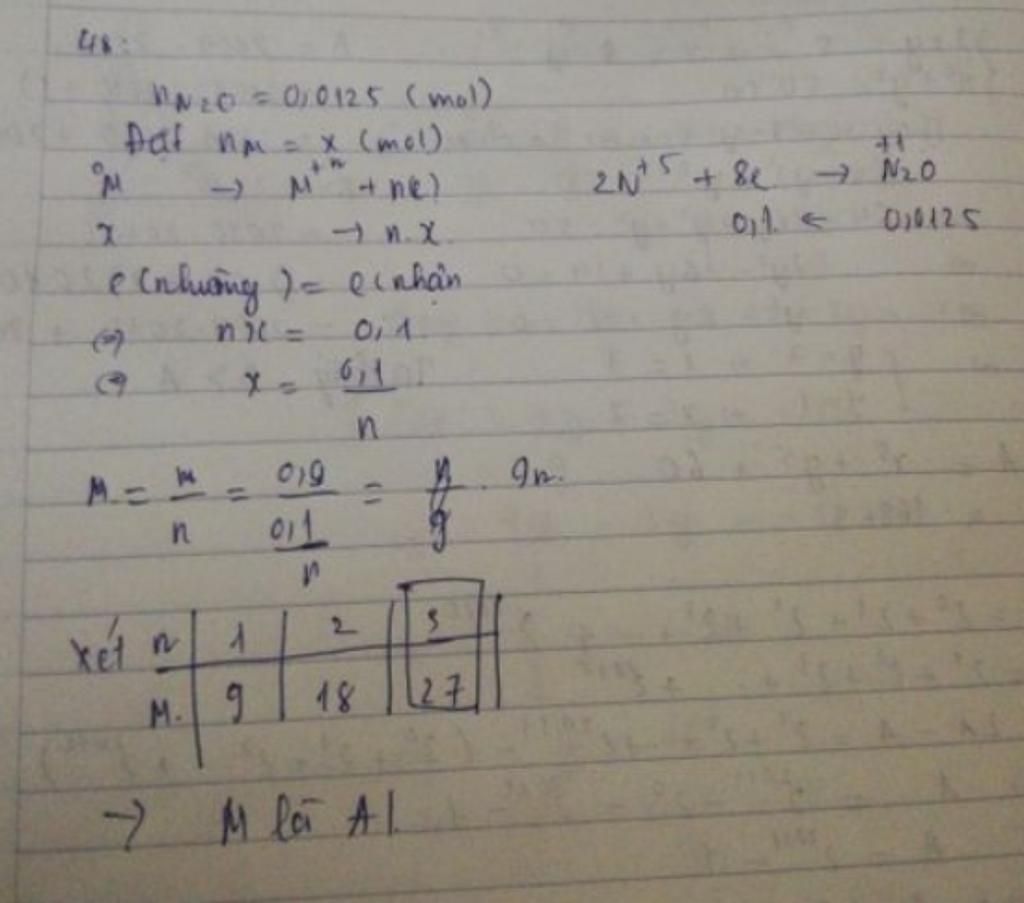 48:
nN2O = 0,0125 (mol)
Đặt nM = x (mol)
M⁰ → M⁺ⁿ + ne) 2N⁺⁵ + 8e → N₂⁺¹O
x → n.x. 0,1 ← 0,0125
e (nhường) = e (nhận
⇔ nx = 0,1
⇔ x = 0,1/n
M = m/n = 0,9/(0,1/n) = 9n.
xét n | 1 | 2 | 3
M. | 9 | 18 | 27
→ M là Al.